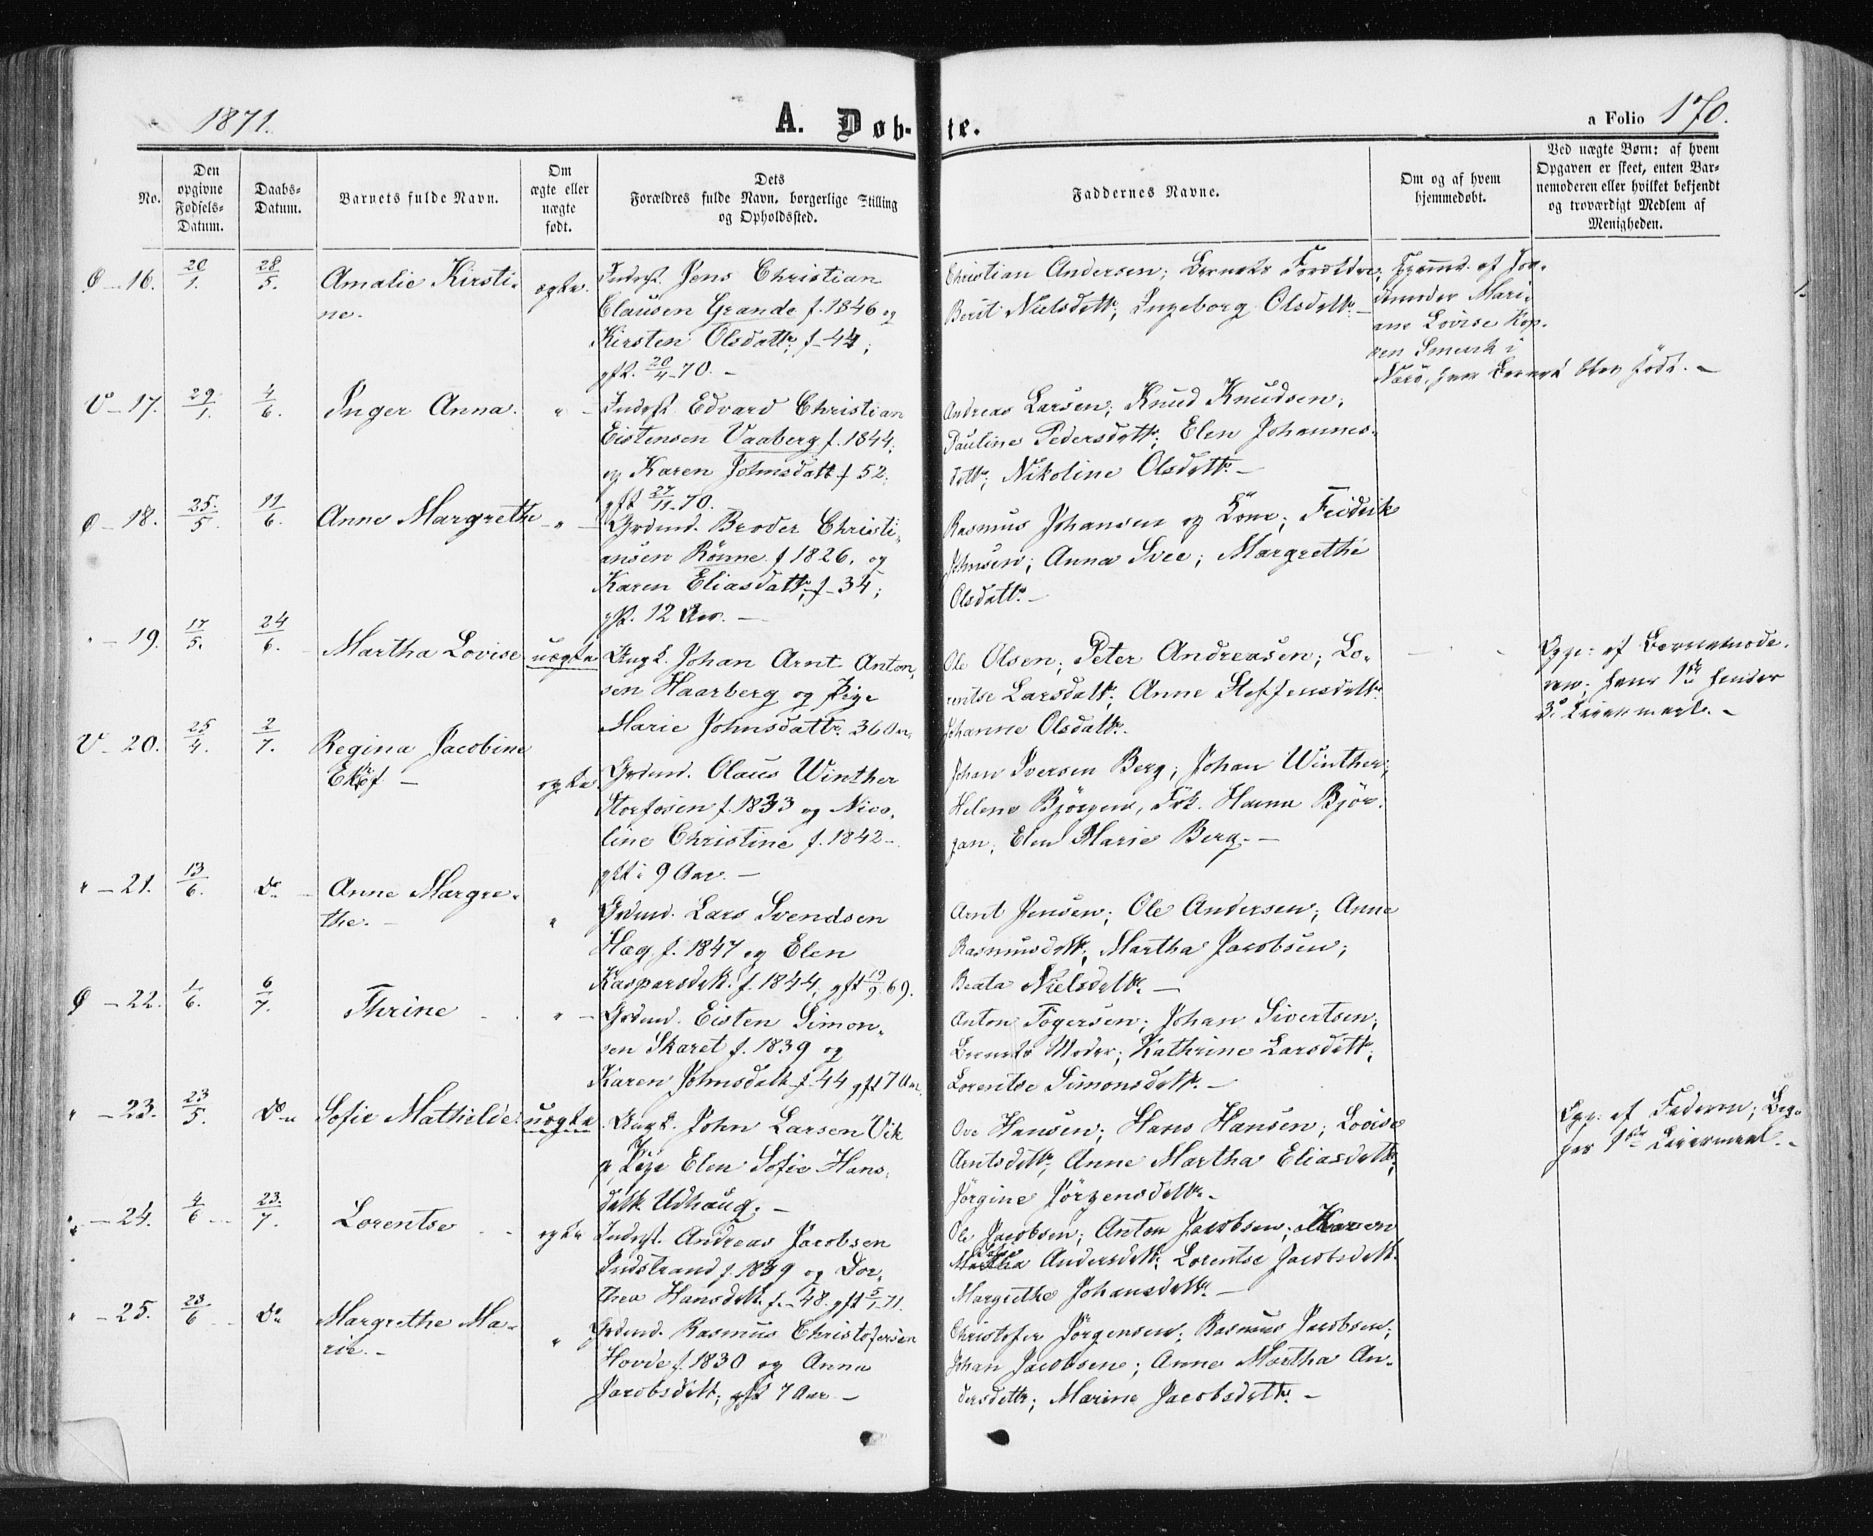 1871.
A. Døb-te.
a Folio 170.
No.
Den opgivne Fødsels-Datum.
Daabs-Datum.
Barnets fulde Navn.
Om ægte eller uægte født.
Dets Forældres fulde Navn, borgerlige Stilling og Opholdssted.
Faddernes Navne.
Om og af hvem hjemmedøbt.
Ved uægte Børn: af hvem Opgaven er skeet, enten Barnemoderen eller hvilket bekjendt og troværdigt Medlem af Menigheden.
Ø - 16. 20/1. 28/5. Amalie Kirsti-
ne.
ægte.
Inderst. Jens Christian
Clausen Grande f. 1846 og
Kirsten Olsdatt. f. 44;
gft. 20/4 70. -
Christian Andersen; Barnets Forældre,
Berit Nielsdatt., Ingeborg Olsdatt. -
Hjemmed. af Jor-
demoder Mari-
ane Lovise
i
hvor Barnet blev født. -
V - 17. 29/1. 4/6. Inger Anna. " -
Inderst. Edvard Christian
Eistensen Vaaberg f. 1844,
og Karen Johnsdatt. f. 52,
gft 27/11 70.
Andreas Larsen; Knud Knudsen;
Pauline Pedersdatt.; Elen Johannes-
datt.; Nikoline Olsdatt. -
Ø - 18. 25/5. 11/6. Anne Margrethe " -
Grdmd. Broder Christi-
ansen Rønne f. 1826. og
Karen Eliasdatt. f. 34;
gft. 12 Aar. -
Rasmus Johansen og Kone; Fredrik
Johnsen; Anna Svee; Margrethe
Olsdatt. -
" - 19. 17/5. 24/6. Martha Lovise uægte
Ungk. Johan Arnt Anton-
sen Haarberg og Pige
Marie Johnsdatt. 36 Aar.
Ole Olsen; Peter Andreasen; Lo-
rentse Larsdatt.; Anne Steffensdatt.
Johanne Olsdatt.
Opg: af Barnemode-
ren; hans 1ste hendes
3die Leiermaal. -
V - 20. 25/4. 2/7. Regina Jacobine
ægte.
Grdmd. Olaus Winther
Storfosen f. 1833 og Nico-
line Christine f. 1842 -
gft i 9 Aar. -
Johan Iversen Berg; Johan Winther,
Helene Bjørgan, Frk. Hanna Bjør-
gan, Elen Marie Berg. -
" - 21. 13/6. Do - Anne Margre-
the. -
"
Grdmd. Lars Svendsen
Hag f. 1847 og Elen
Kaspersdatt. f. 1844, gft 19/9 69.
Arnt Jensen; Ole Andersen; Anne
Rasmusdatt., Martha Jacobsen;
Beata Nielsdatt. -
Ø - 22. 1/6. 6/7. Thrine " -
Grdmd. Eisten Simon-
sen Skaret f. 1839 og
Karen Johnsdatt. f. 44 gft 7 Aar.
Anton Togersen; Johan Sivertsen;
Barnets Moder; Kathrine Larsdatt.;
Lorentse Simonsdatt. -
" - 23. 23/5. Do - Sofie Mathilde: uægte
Ungk. John Larsen Vik
og Pige Elen Sofie Hans-
datt. Udhaug. -
Ove Hansen; Hans Hansen; Lovise
Arntsdatt., Anne Martha Eliasdatt.;
Jørgine Jørgensdatt. -
Opg: af Faderen; Beg-
ges 1ste Leiermaal. -
" - 24. 4/6 23/7. Lorentse ægte
Inderst. Andreas Jacobsen
Indstrand f. 1839 og Dor-
thea Hansdatt. f. - 48. gft 5/1 71.
Ole Jacobsen; Anton Jacobsen; Karen
Martha Andersdatt. Lorentse Jacobsdatt.
Margrethe Johansdatt. -
" - 25. 23/6 Do Margrethe Ma-
rie. -
"
Grdmd. Rasmus Christofersen
Hovde f. 1830 og Anna
Jacobsdatt.; gft 7 Aar -
Christofer Jørgensen; Rasmus Jacobsen;
Johan Jacobsen; Anne Martha An-
dersdatt.; Marine Jacobsdatt. -